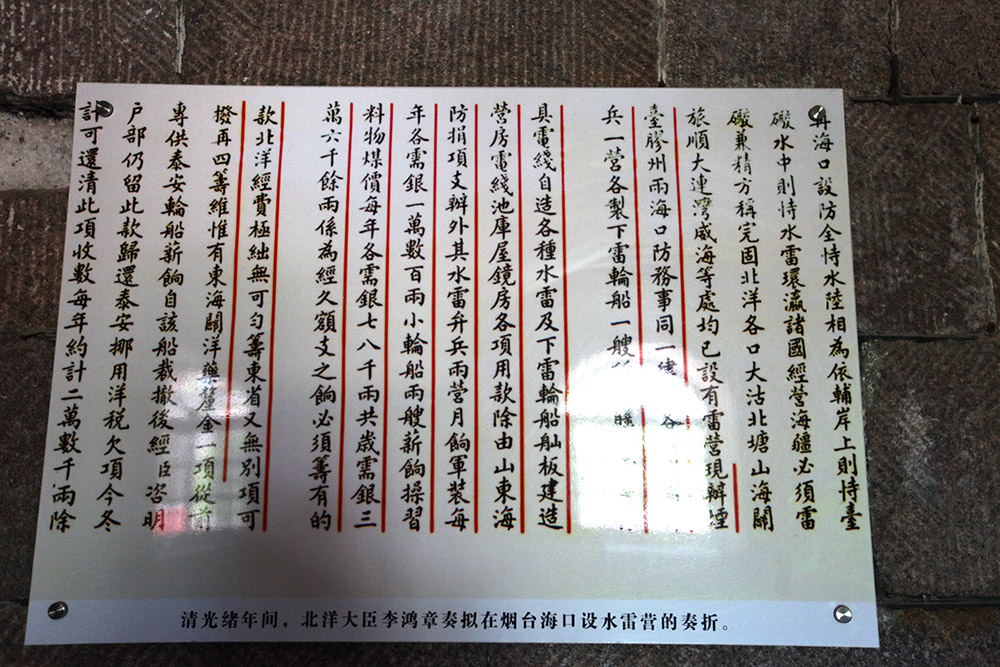 再海口設防全恃水陸相為依輔岸上則恃臺
礮水中則恃水雷環瀛諸國經營海疆必須雷
礮兼精方稱完固北洋各口大沽北塘山海關
旅順大連灣威海等處均已設有雷營現辦煙
臺膠州兩海口防務事同一律 各
兵一營各製下雷輪船一艘
具電綫自造各種水雷及下雷輪船舢板建造
營房電綫池庫屋鏡房各項用款除由山東海
防捐項支辦外其水雷弁兵兩營月餉軍裝每
年各需銀一萬數百兩小輪船兩艘薪餉操習
料物煤價每年各需銀七八千兩共歲需銀三
萬六千餘兩係為經久額支之餉必須籌有的
款北洋經費極絀無可勻籌東省又無別項可
撥再四籌維惟有東海關洋藥釐金一項從前
專供泰安輪船薪餉自該船裁撤後經臣咨明
戶部仍留此款歸還泰安挪用洋稅欠項今冬
計可還清此項收數每年約計二萬數千兩除
清光绪年间，北洋大臣李鸿章奏拟在烟台海口设水雷营的奏折。